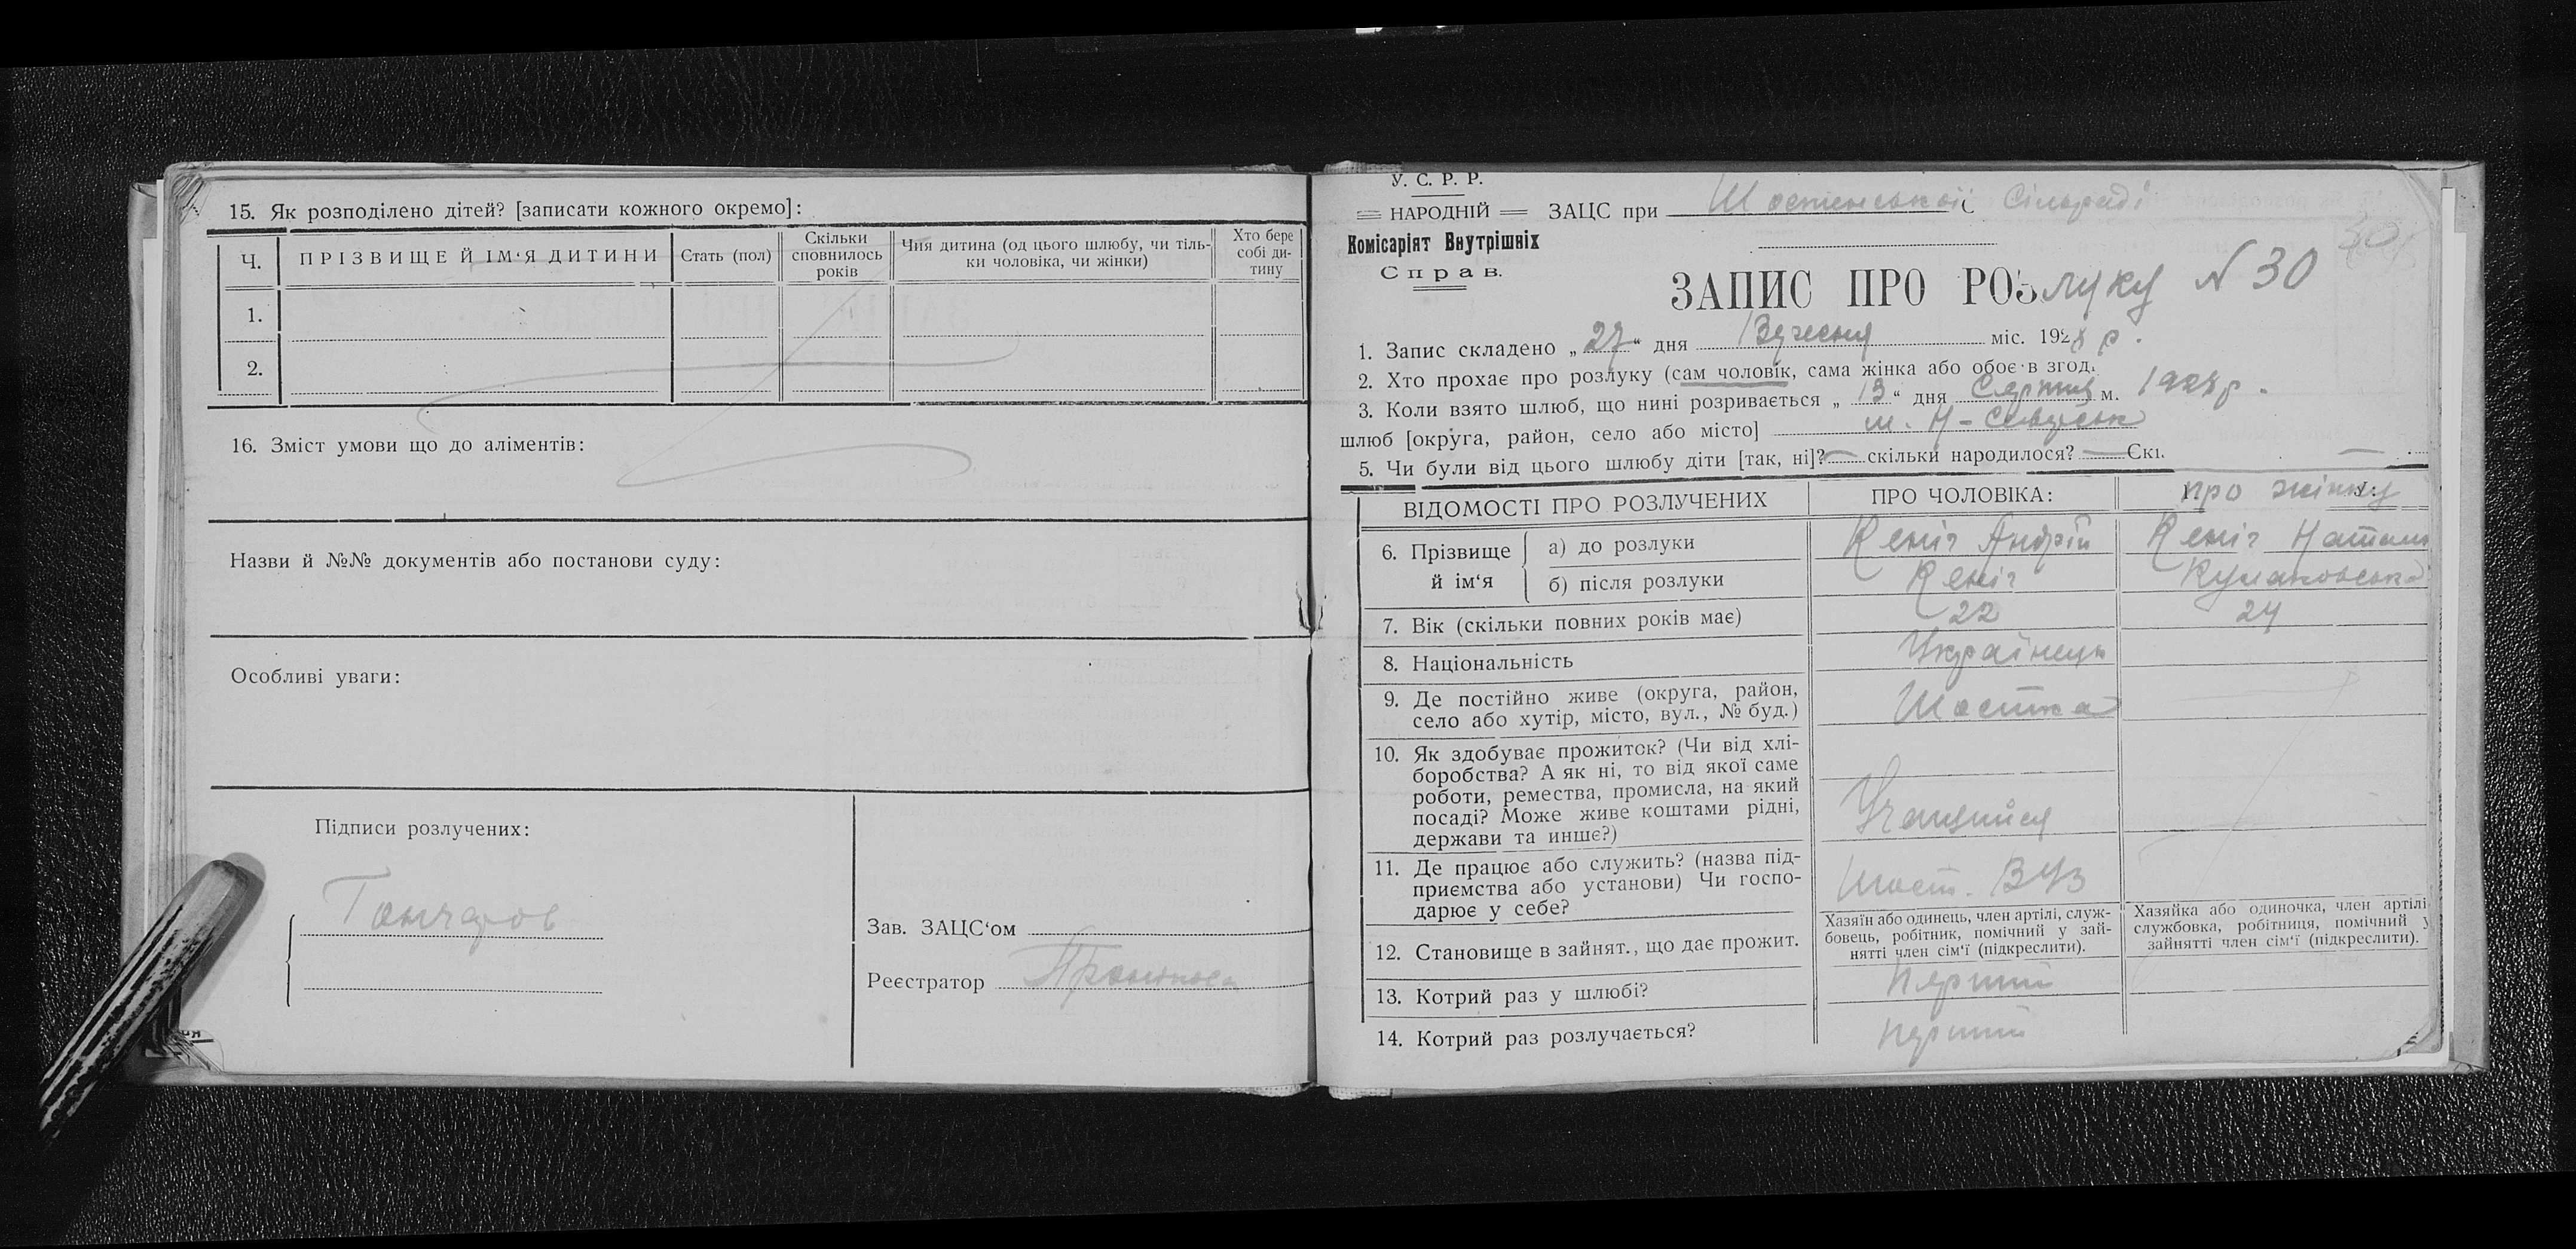 15. Як розподілено дітей? [записати кожного окремо]:
Ч.
ПРІЗВИЩЕ Й ІМ‘Я ДИТИНИ
Стать (пол)
Скільки
сповнилось
років
Чия дитина (од цього шлюбу, чи тіль-
ки чоловіка, чи жінки)
Хто бере
собі ди-
тину
1.
2.
16. Зміст умови що до аліментів:
Назви й №№ документів або постанови суду:
Особливі уваги:
Підписи розлучених:
Гончаров
Зав. ЗАЦС‘ом
Реєстратор
У. С. Р. Р.
НАРОДНІЙ
Комісаріят Внутрішніх
Справ.
ЗАЦС при Шостенській Сільраді
30
ЗАПИС ПРО РОЗлуку N 30
1. Запис складено „27“ дня Вересня міс. 1928 р.
2. Хто прохає про розлуку (сам чоловік, сама жінка або обоє в згод.
3. Коли взято шлюб, що нині розривається „13“ дня Серпня м. 1928 р.
шлюб [округа, район, село або місто] м. Н-Сіверськ
5. Чи були від цього шлюбу діти [так, ні]? — скільки народилося? — Скі.
ВІДОМОСТІ ПРО РОЗЛУЧЕНИХ
ПРО ЧОЛОВІКА:
про жінку
6. Прізвище й ім‘я
а) до розлуки
Кеніг Андрій
Кеніг
б) після розлуки
Кеніг
7. Вік (скільки повних років має)
22
24
8. Національність
Українець
9. Де постійно живе (округа, район,
село або хутір, місто, вул., № буд.)
Шостка
10. Як здобуває прожиток? (Чи від хлі-
боробства? А як ні, то від якої саме
роботи, ремества, промисла, на який
посаді? Може живе коштами рідні,
держави та инше?)
Учащийся
11. Де працює або служить? (назва під-
приємства або установи) Чи госпо-
дарює у себе?
Шост. ВУЗ
12. Становище в зайнят., що дає прожит.
Хазяїн або одинець, член артілі, служ-
бовець, робітник, помічний у зай-
нятті член сім‘ї (підкреслити).
Хазяйка або одиночка, член артілі
службовка, робітниця, помічний у
зайнятті член сім‘ї (підкреслити).
13. Котрий раз у шлюбі?
перший
14. Котрий раз розлучається?
перший